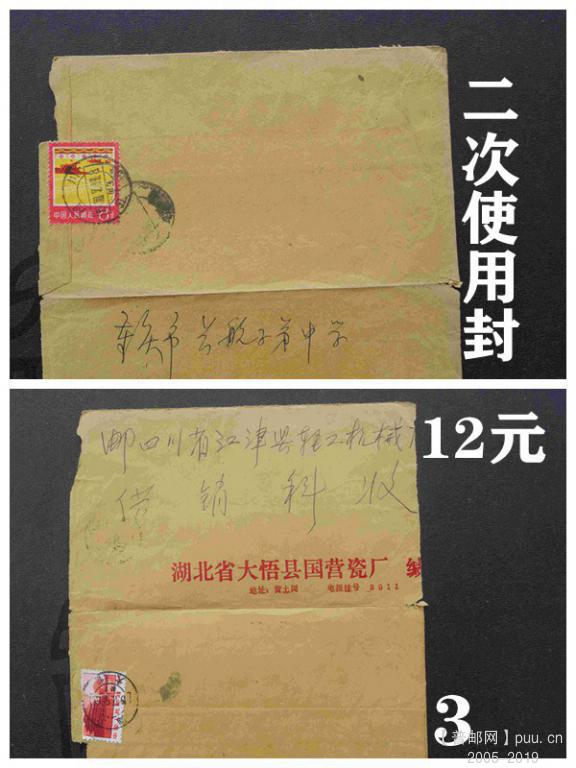 二次使用封
中国人民邮政
重庆市长航子弟中学
12元
邮四川省江津县轻工机械
供销科收
湖北省大悟县国营瓷厂
地址：黄土岗 电报挂号 8011
3
【普邮网】puu.cn
2005-2019